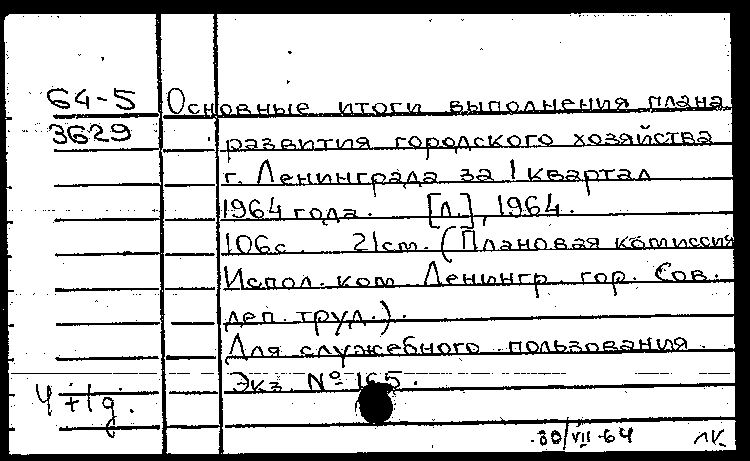 64-5 Основные итоги выполнения плана
3629 развития городского хозяйства
г. Ленинграда за I квартал
1964 года. [Л.], 1964.
106с. 21см. (Плановая комиссия
Испол. ком Ленингр. гор. Сов.
деп. труд.).
Для служебного пользования.
Экз. № 165.
4+1д.
30/VII-64 ЛК